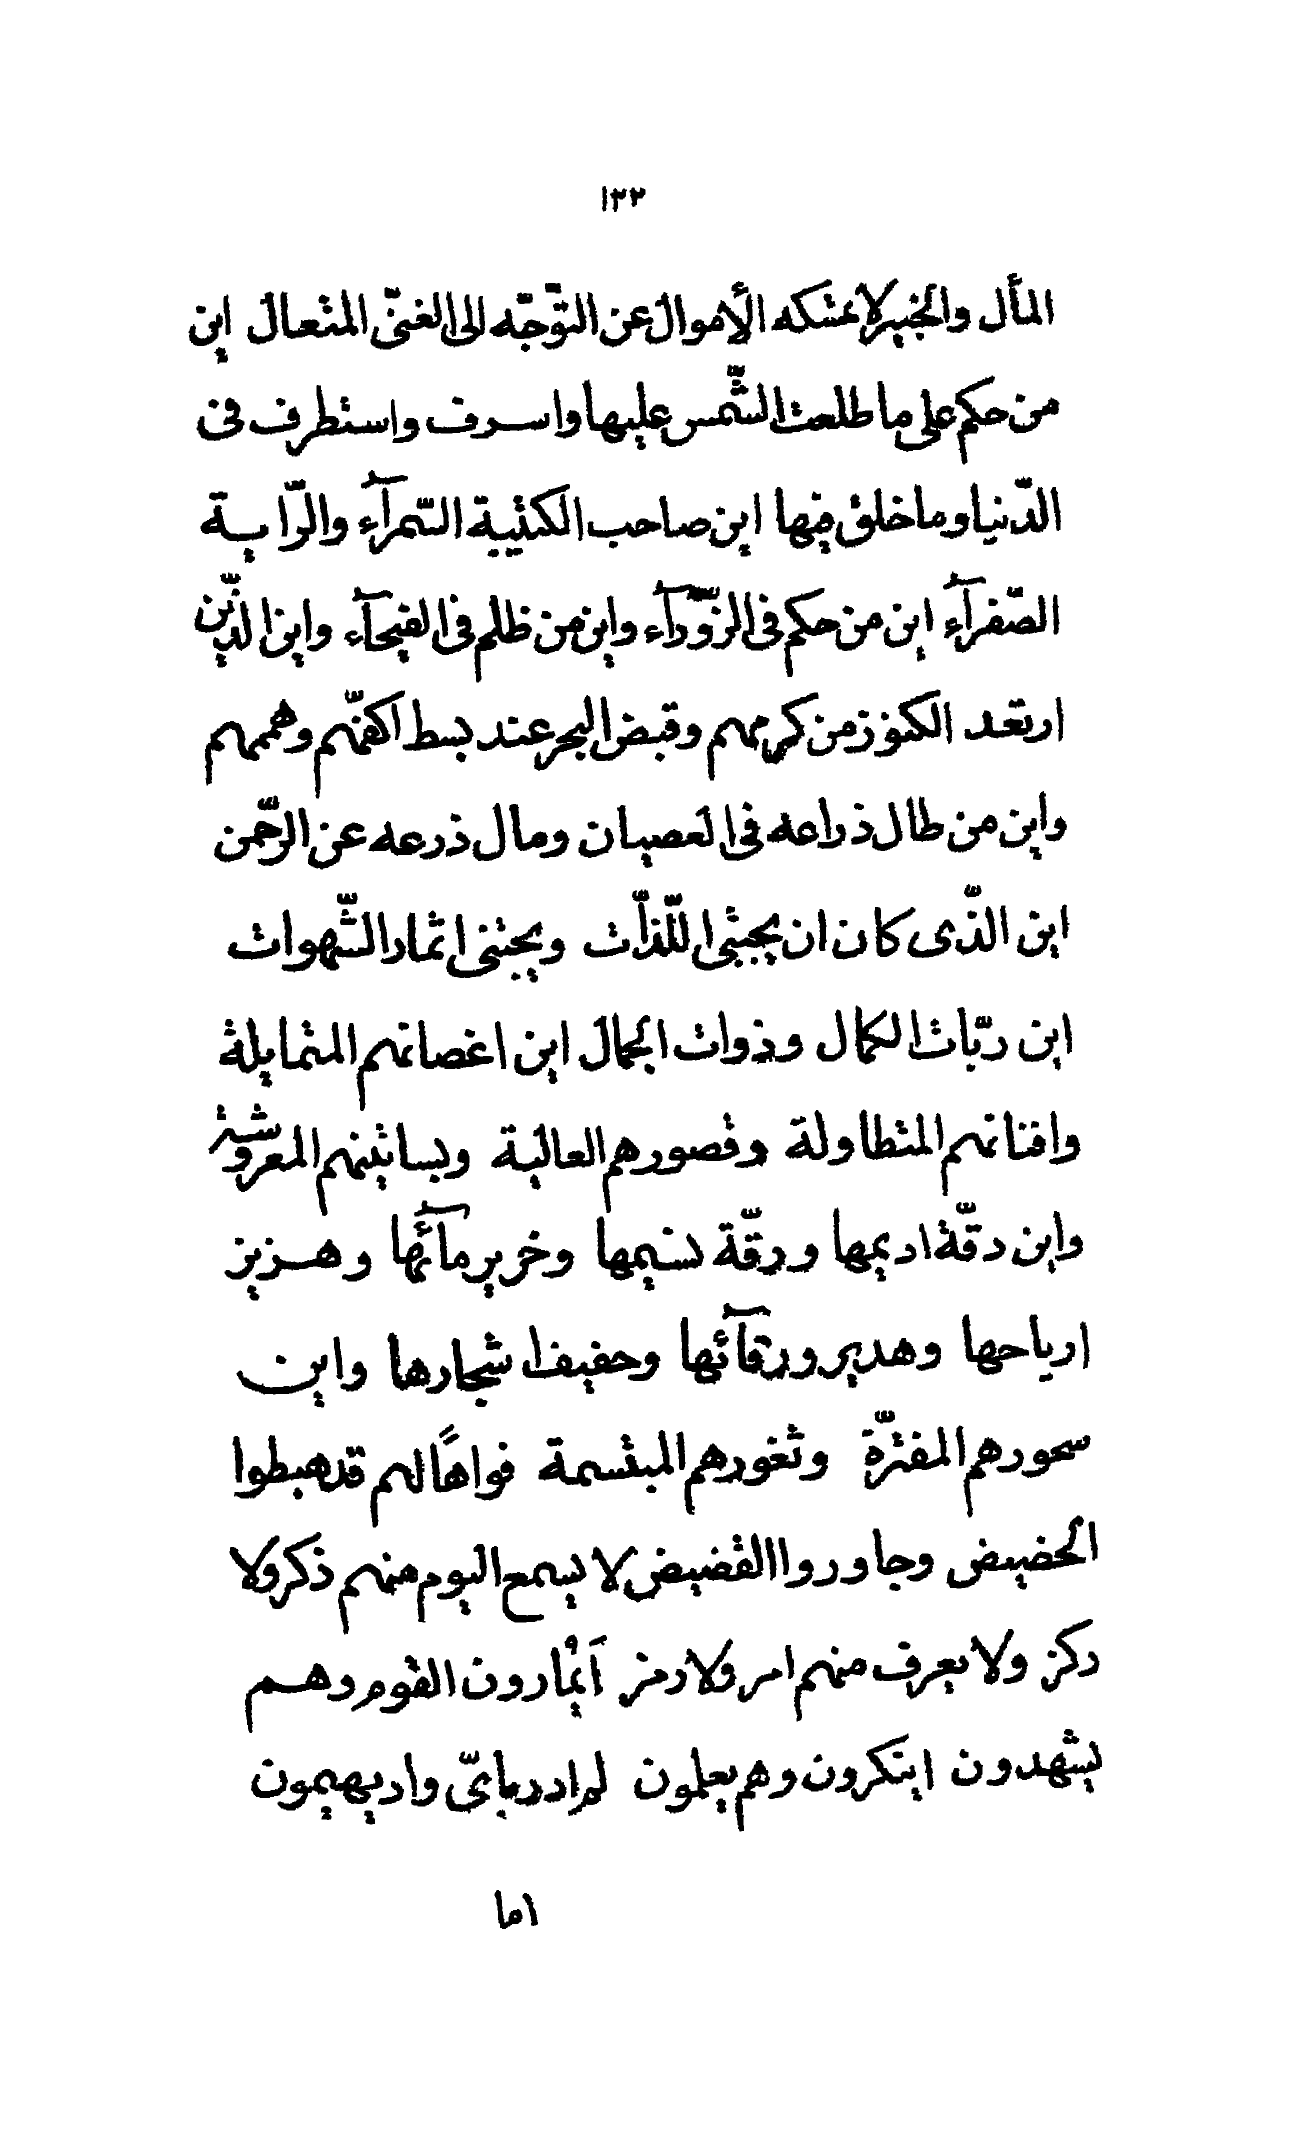 ١٢٢
المأل والخبير لا تمسكه الأموال عن التّوجّه الى الغنىّ المتعال اين
من حكم على ما طلعت الشّمس عليها واسرف واستطرف فى
الدّنيا وما خلق فيها اين صاحب الكتيبة السّمرآء والرّاية
الصّفرآء اين من حكم فى الزّورآء واين من ظلم فى الفيحآء واين الّذين
ارتعد الكنوز من كرمهم وقبض البحر عند بسط اكفّهم وهممهم
واين من طال ذراعه فى العصيان ومال ذرعه عن الرّحمن
اين الّذى كان ان يجتبى اللّذّات ويجتنى اثمار الشّهوات
اين ربّات الكمال وذوات الجمال اين اغصانهم المتمايلة
وافنانهم المتطاولة وقصورهم العالية وبساتينهم المعروشة
واين دقّة اديمها ورقّة نسيمها وخرير مآئها وهزيز
ارياحها وهدير ورقآئها وحفيف اشجارها واين
سحورهم المفترّة وثغورهم المبتسمة فواهاً لهم قد هبطوا
الحضيض وجاوروا القضيض لا يسمع اليوم منهم ذكر ولا
ركز ولا يعرف منهم امر ولا رمز أيمارون القوم وهم
يشهدون اينكرون وهم يعلمون لم ادر باىّ واد يهيمون
اما